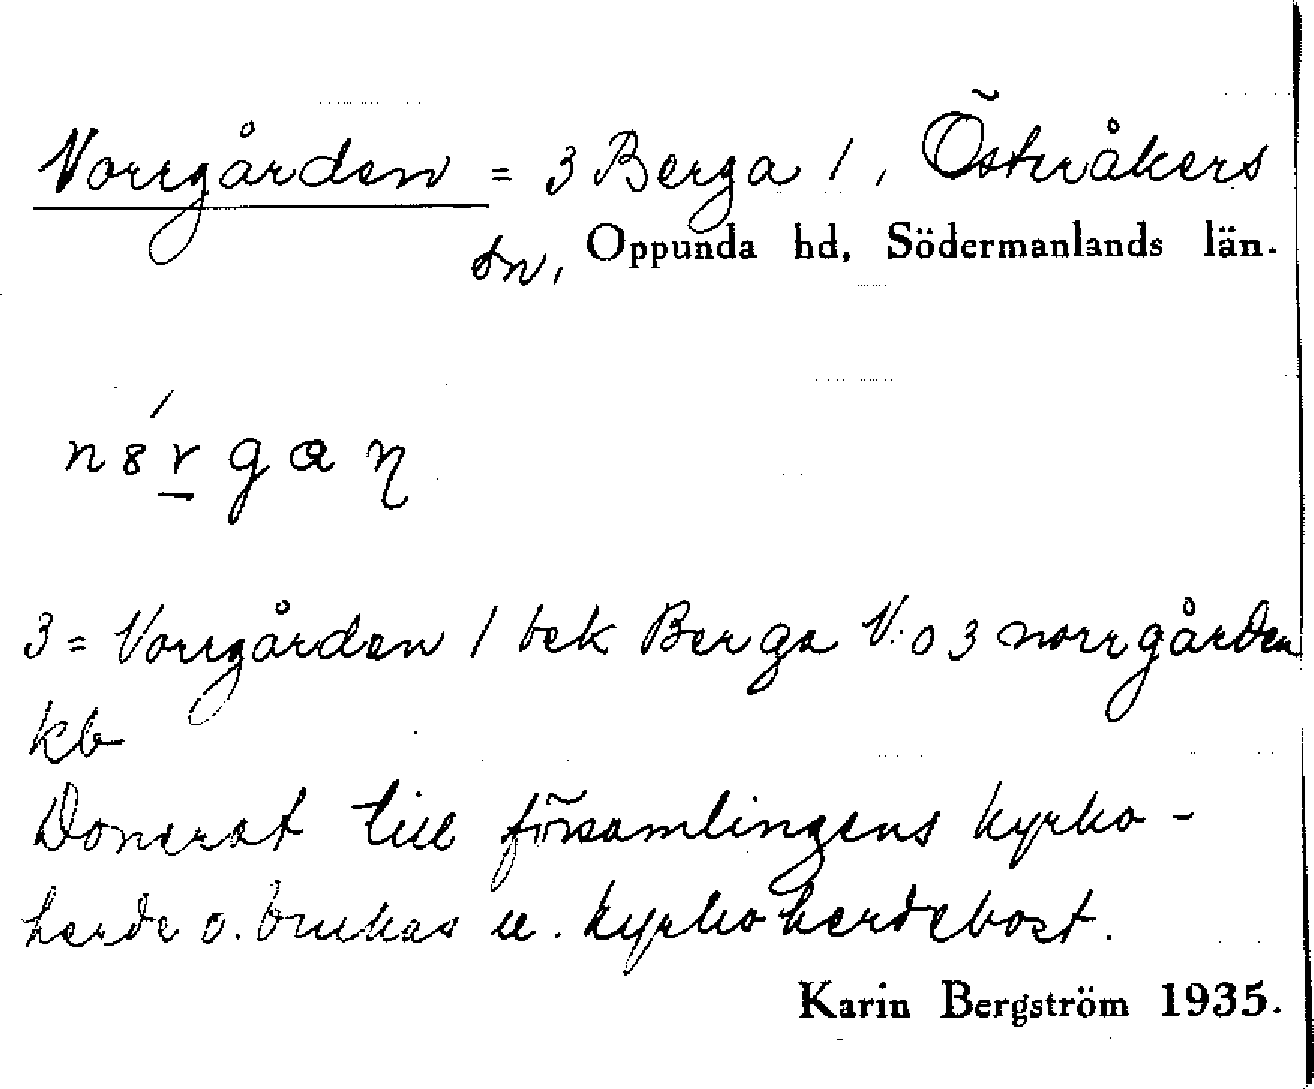 Norrgården = 3 Berga 1, Österåkers
sn, Oppunda hd, Södermanlands län.
nȣ́r̲gaη
3 = Norrgården 1 bek Berga N:o 3 norrgården
kb
Donerat till församlingens kyrko-
herde o. brukas u. kyrkoherdebost.
Karin Bergström 1935.